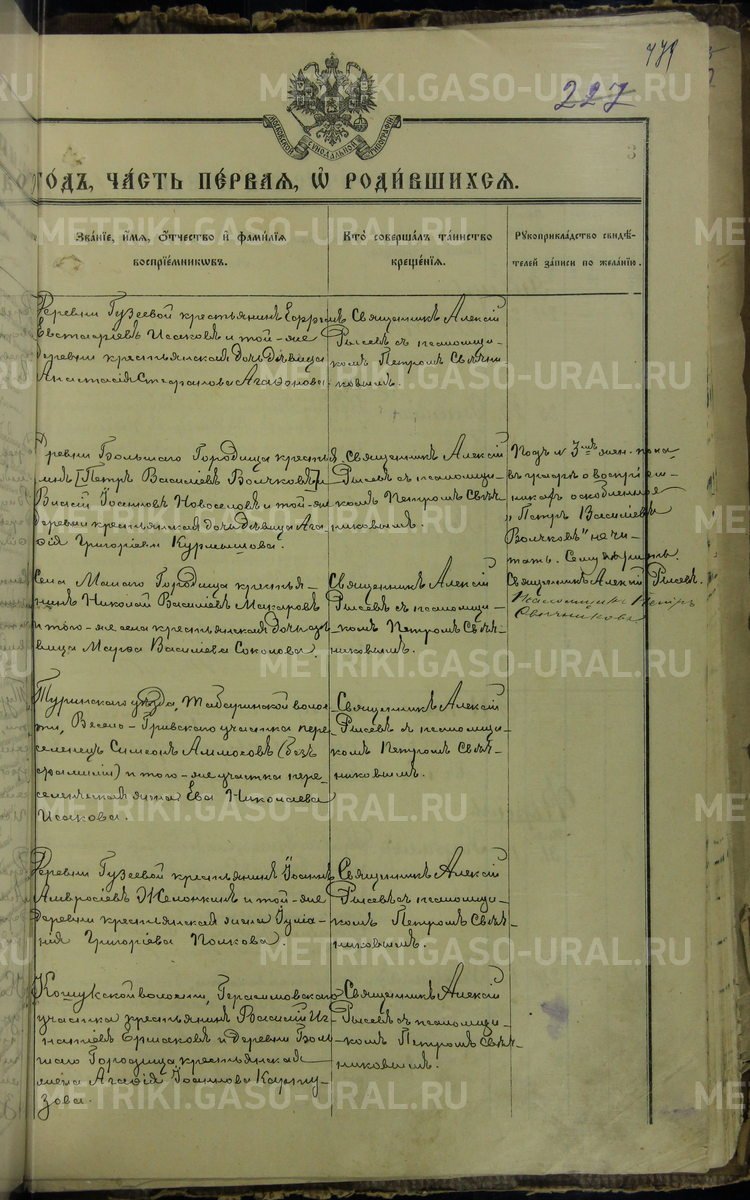 227
МОСКОВСКОЙ СѴНОДАЛЬНОЙ ТИПОГРАФІИ
3
ГОДЪ, ЧАСТЬ ПЕРВАЯ, Ѡ РОДИВШИХСЯ.
Званіе, имя, отчество и фамилія воспріемниковъ.
Кто совершалъ таинство крещенія.
Рукоприкладство свидѣтелей записи по желанію.
Деревни Гузеевой крестьянинъ
Евстафіевъ Исаковъ и той-же
деревни крестьянская дочь дѣвица
Анастасія Стефанова Агафонова.
Священникъ Алексій
Рысевъ съ псаломщи-
комъ Петромъ Свѣч-
никовымъ.
Деревни Большаго Городища крестья-
нинъ [Петръ Василіевъ Волчковъ] и
Василій Іоанновъ Новоселовъ и той-же
деревни крестьянская дочь дѣвица Ага-
фія Григоріева Курмышова.
Священникъ Алексій
Рысевъ съ псаломщи-
комъ Петромъ Свѣч-
никовымъ.
Подъ № 3мъ жен. пола
въ графѣ о воспріем-
никахъ
„Петръ Василіевъ
Волчковъ" не чи-
тать. Сему вѣрить.
Священникъ Алексій Рысевъ.
Псаломщикъ Петръ
Свѣчниковъ
Села Малаго Городища крестья-
нинъ Николай Василіевъ Макаровъ
и того-же села крестьянская дочь дѣ-
вица Марѳа Васильева Соколова.
Священникъ Алексій
Рысевъ съ псаломщи-
комъ Петромъ Свѣч-
никовымъ.
Туринскаго уѣзда, Табаринской воло-
сти, Весело-Гривскаго участка пере-
селенецъ Симеонъ Аммосовъ (безъ
фамиліи) и того-же участка пере-
селенческая жена Ева Николаева
Исакова.
Священникъ Алексій
Рысевъ съ псаломщи-
комъ Петромъ Свѣч-
никовымъ.
Деревни Гузеевой крестьянинъ Іоаннъ
Амвросіевъ Желонкинъ и той-же
деревни крестьянская жена Іуліа-
нія Григоріева Попкова.
Священникъ Алексій
Рысевъ съ псаломщи-
комъ Петромъ Свѣч-
никовымъ.
Кошукской волости, Герасимовскаго
участка крестьянинъ Василій Иг-
натіевъ Ермаковъ и деревни Боль-
шаго Городища крестьянская
жена Агафія Іоаннова Карпу-
зова.
Священникъ Алексій
Рысевъ съ псаломщи-
комъ Петромъ Свѣч-
никовымъ.
METRIKI.GASO-URAL.RU